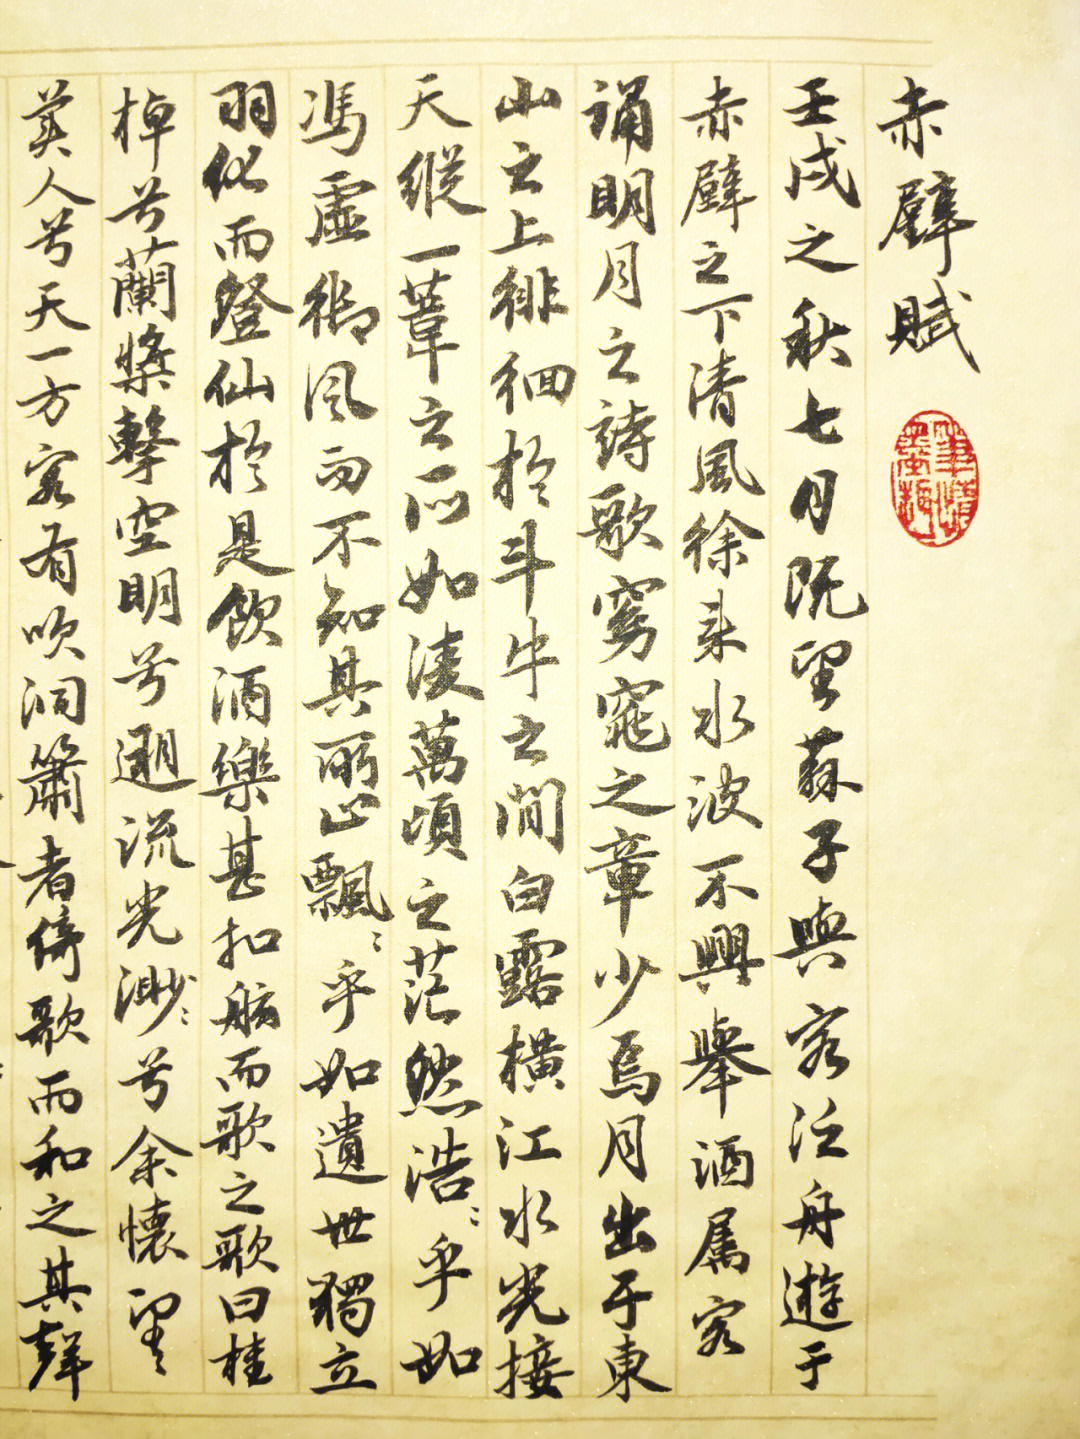 赤壁賦
壬戌之秋七月既望蘇子與客泛舟遊于
赤壁之下清風徐来水波不興舉酒属客
誦明月之詩歌窈窕之章少焉月出于東
山之上徘徊於斗牛之間白露橫江水光接
天縱一葦之所如淩萬頃之茫然浩〻乎如
馮虛御風而不知其所止飄〻乎如遺世獨立
羽化而登仙於是飲酒樂甚扣舷而歌之歌曰桂
棹兮蘭槳擊空明兮遡流光渺〻兮余懷望
美人兮天一方客有吹洞簫者倚歌而和之其聲